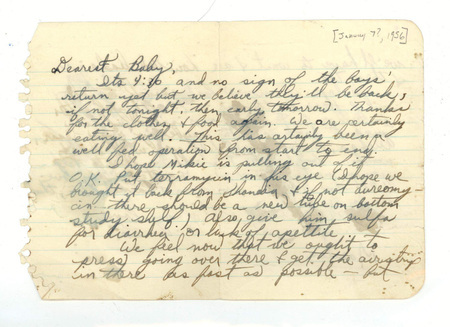 [January 7?, 1956]
Dearest Baby,
Its 4:20 and no sign of the boys'
return yet but we believe they'll be back,
if not tonight, then early tomorrow. Thanks
for the clothes & food again. We are certainly
eating well. This has certainly been a
well fed operation from start to end.
I hope Mikie is pulling out of it
O.K. Put terramycin in his eye (I hope we
brought it back from Shandia & if not aureomy-
cin there should be a new tube on bottom
study shelf.) Also, give him sulfa
for diarrhea or lack of apetite.
We feel now that we ought to
press going over there & get the airstrip
in there as fast as possible — but